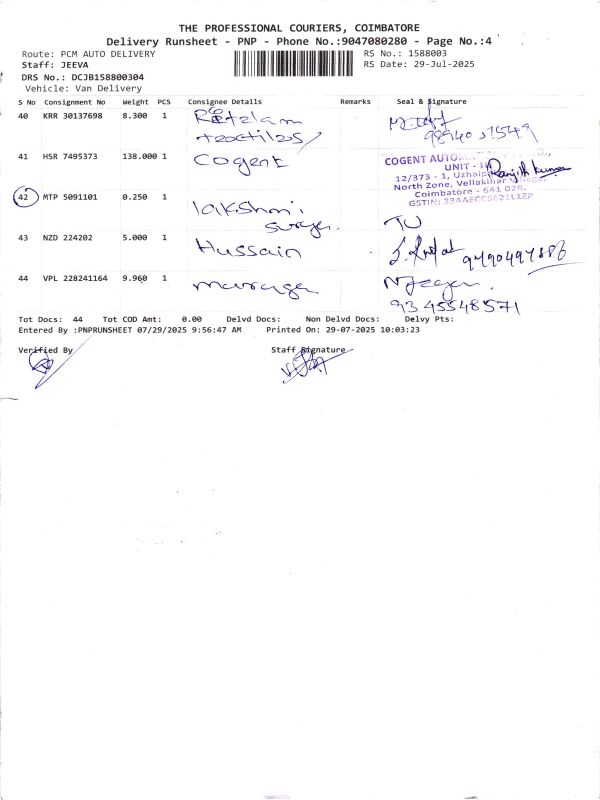 THE PROFESSIONAL COURIERS, COIMBATORE
Delivery Runsheet - PNP - Phone No.:9047080280 - Page No.:4
Route: PCM AUTO DELIVERY RS No.: 1588003
Staff: JEEVA RS Date: 29-Jul-2025
DRS No.: DCJB158800304
Vehicle: Van Delivery
S No Consignment No Weight PCS Consignee Details Remarks Seal & Signature
40 KRR 30137698 8.300 1
textiles
41 HSR 7495373 138.000 1 Cogent
COGENT AUTOM
UNIT -
12/373 - 1, Uzhaip
North Zone, Vellakinar Village,
Coimbatore - 641 029.
GSTIN: 33AAECC6621L1ZP
Ranjith kumar
42 MTP 5091101 0.250 1 lakshmi
43 NZD 224202 5.000 1 Hussain
44 VPL 228241164 9.960 1
9345548571
Tot Docs: 44 Tot COD Amt: 0.00 Delvd Docs: Non Delvd Docs: Delvy Pts:
Entered By :PNPRUNSHEET 07/29/2025 9:56:47 AM Printed On: 29-07-2025 10:03:23
Verified By Staff Signature